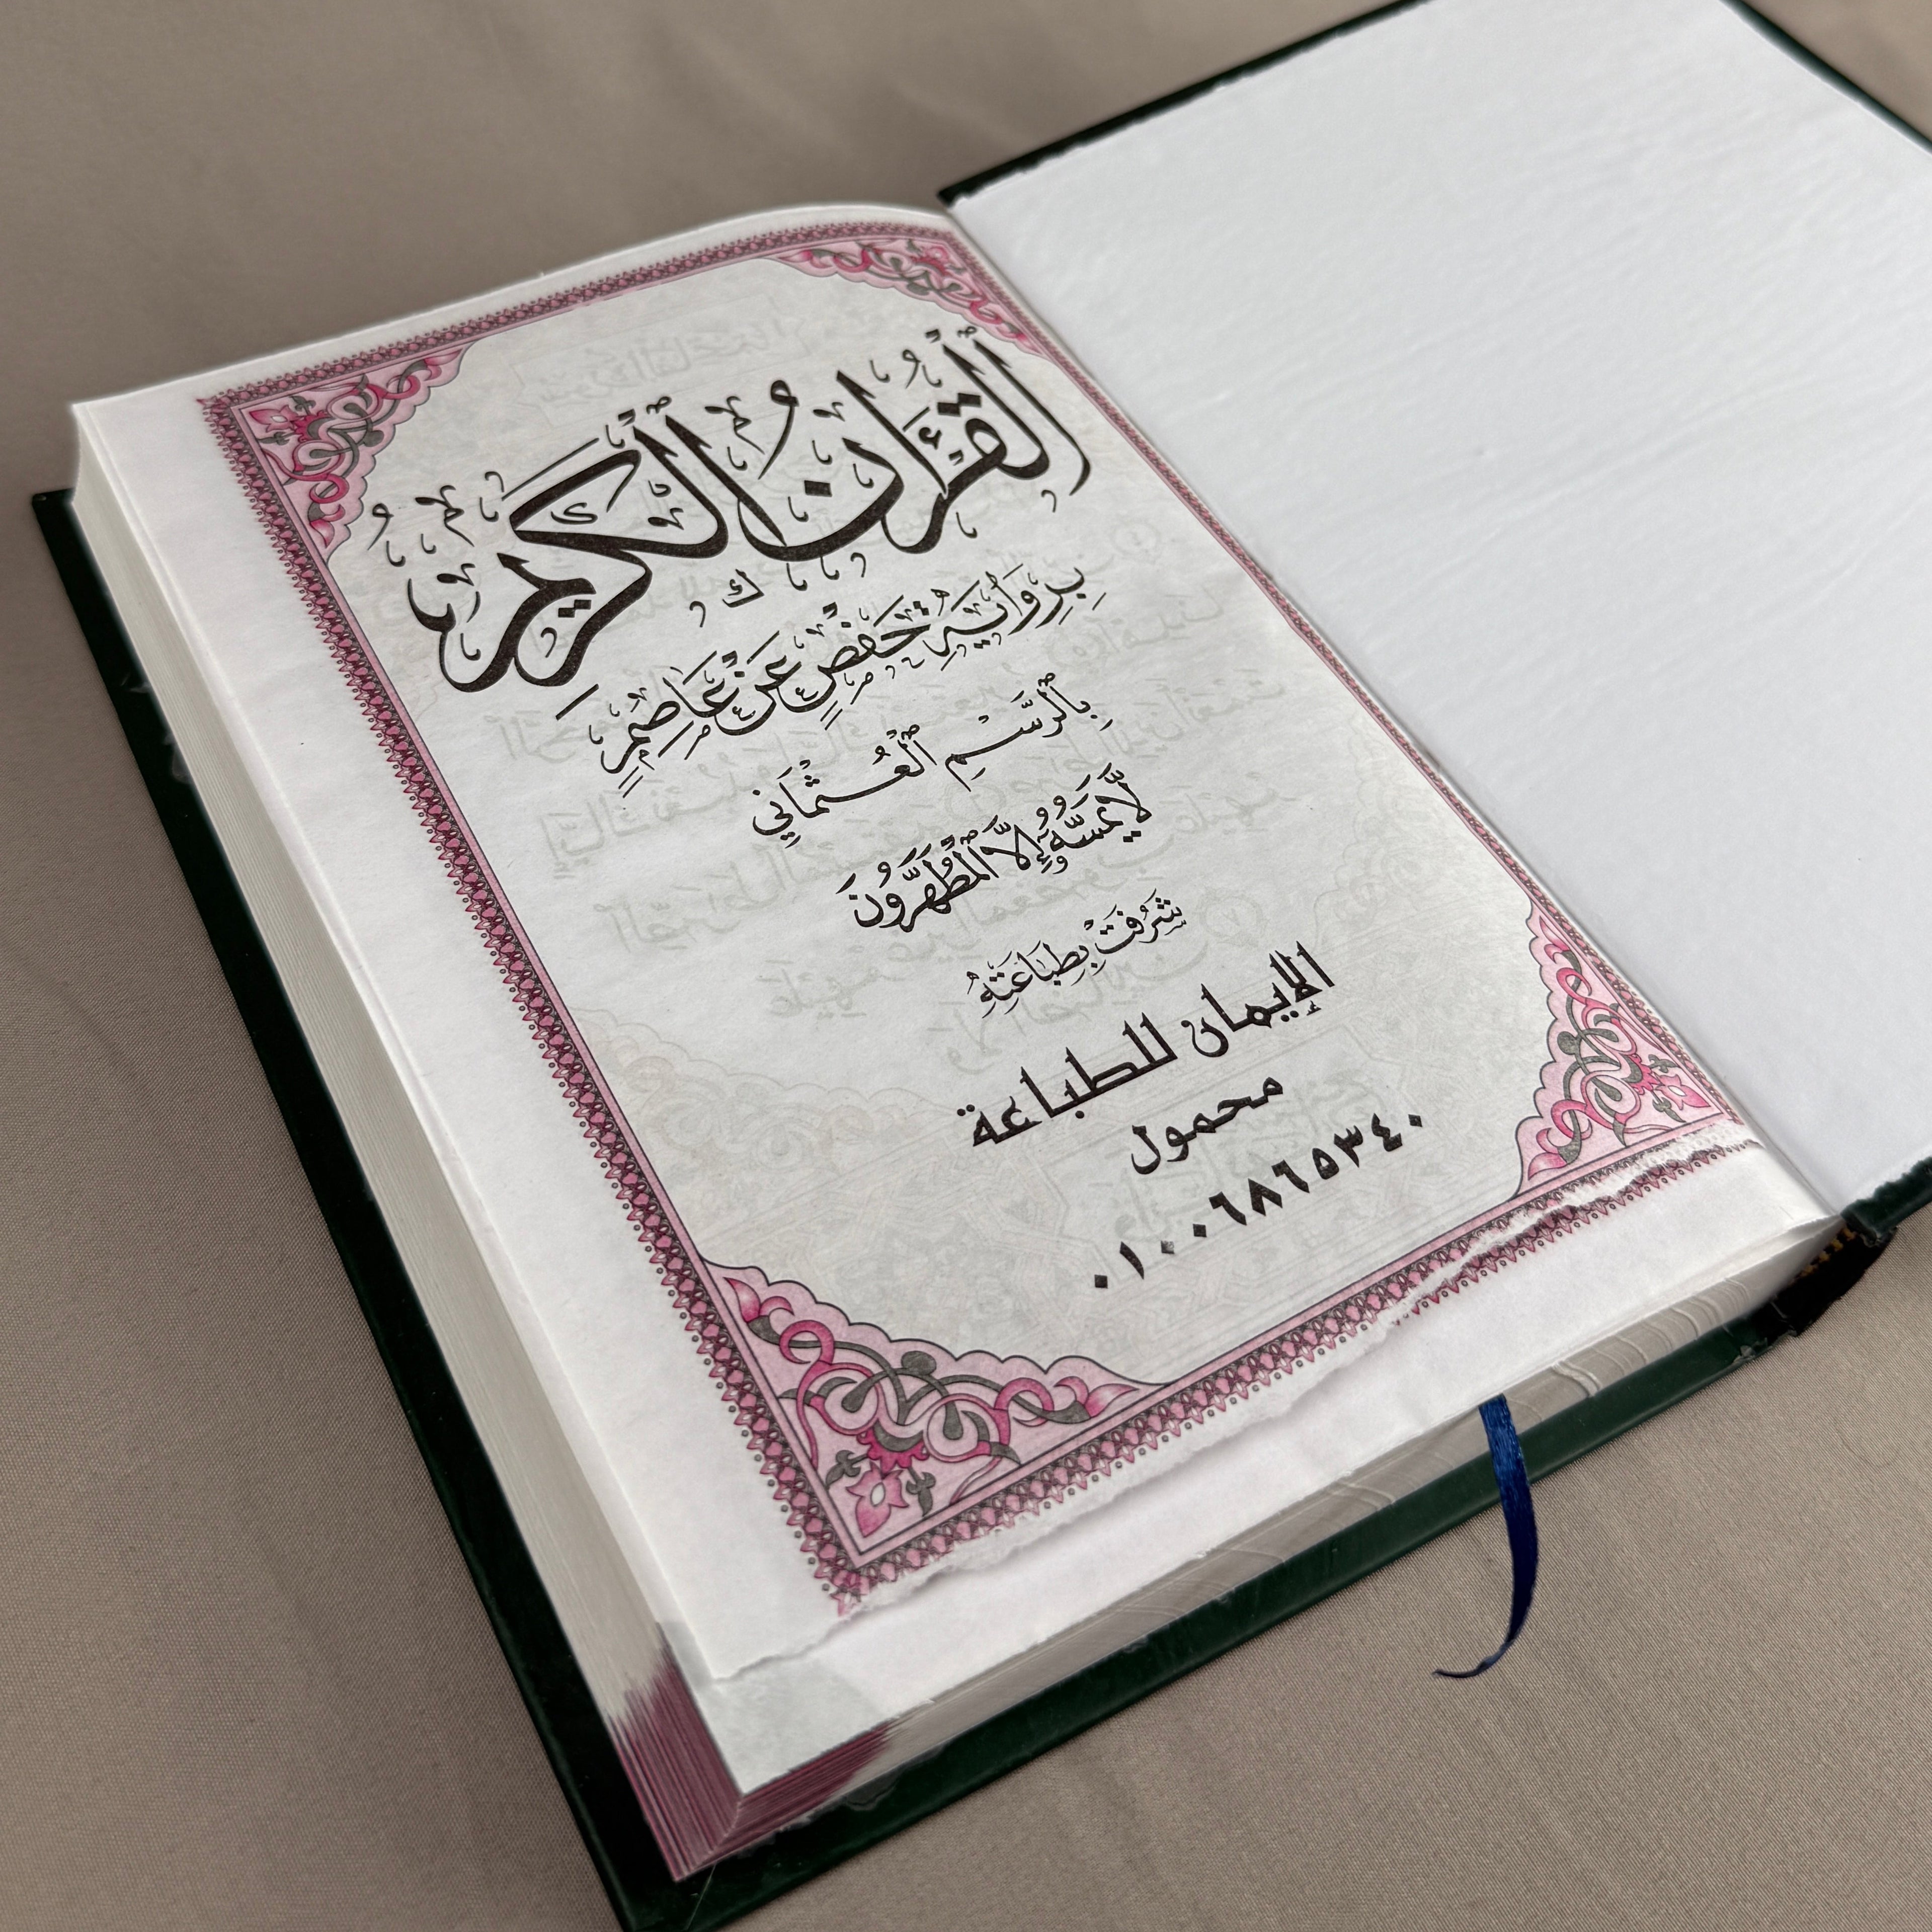 ٱلْقُرْءَانُ ٱلْكَرِيمُ
بِرِوَايَةِ حَفْصٍ عَنْ عَاصِمٍ
بِٱلرَّسْمِ ٱلْعُثْمَانِي
لَّا يَمَسُّهُۥٓ إِلَّا ٱلْمُطَهَّرُونَ
شَرُفَتْ بِطِبَاعَتِهُ
الإيمان للطباعة
محمول
٠١٠٠٦٨٦٥٣٤٠